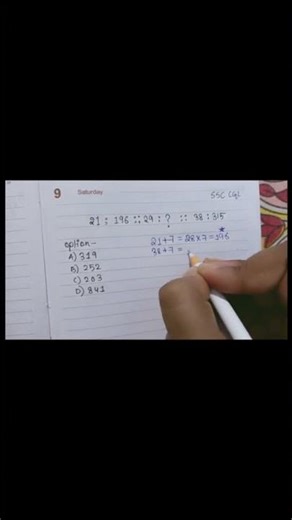 9 Saturday
SSC CGL
21 : 196 :: 29 : ? :: 38 : 315
option:-
A) 319
B) 252
C) 203
D) 841
21+7 = 28×7 = 196
38+7 =